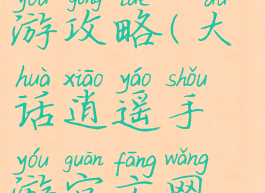 yóu gōng lüè dà
游攻略(大
huà xiāo yáo shǒu
话逍遥手
yóu guān fāng wǎng
游官方网